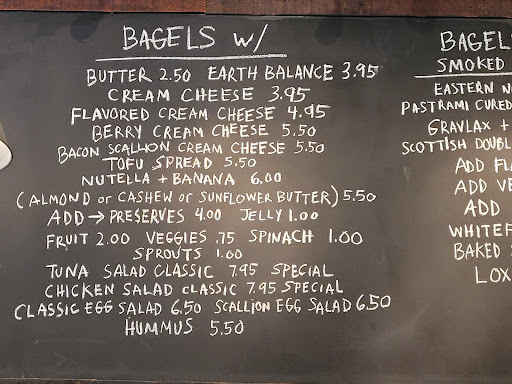 BAGELS W/
BUTTER 2.50 EARTH BALANCE 3.95
CREAM CHEESE 3.95
FLAVORED CREAM CHEESE 4.95
BERRY CREAM CHEESE 5.50
BACON SCALLION CREAM CHEESE 5.50
TOFU SPREAD 5.50
NUTELLA + BANANA 6.00
(ALMOND or CASHEW or SUNFLOWER BUTTER) 5.50
ADD → PRESERVES 4.00 JELLY 1.00
FRUIT 2.00 VEGGIES .75 SPINACH 1.00
SPROUTS 1.00
TUNA SALAD CLASSIC 7.95 SPECIAL
CHICKEN SALAD CLASSIC 7.95 SPECIAL
CLASSIC EGG SALAD 6.50 SCALLION EGG SALAD 6.50
HUMMUS 5.50
BAGEL
SMOKED
EASTERN
PASTRAMI CURED
GRAVLAX +
SCOTTISH DOUBL
ADD FL
ADD VE
ADD
WHITEF
BAKED
LOX